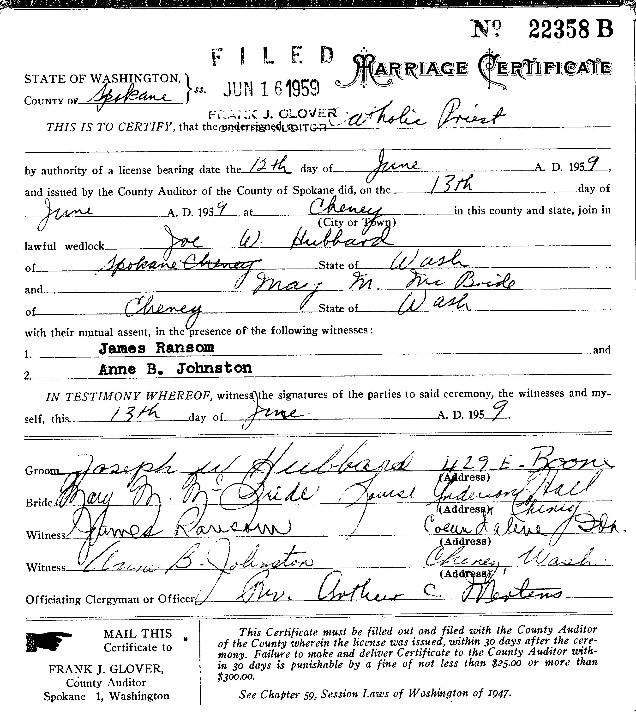 Nº 22358 B
FILED
MARRIAGE CERTIFICATE
STATE OF WASHINGTON, } ss. JUN 16 1959
COUNTY OF Spokane
FRANK J. GLOVER
COUNTY AUDITOR
THIS IS TO CERTIFY, that the undersigned, a Catholic Priest
by authority of a license bearing date the 12th day of June A. D. 1959,
and issued by the County Auditor of the County of Spokane did, on the 13th day of
June A. D. 1959 at Cheney in this county and state, join in
(City or Town)
lawful wedlock Joe W. Hubbard
of Spokane Cheney State of Wash
and Mary M. McBride
of Cheney State of Wash
with their mutual assent, in the presence of the following witnesses:
1. James Ransom and
2. Anne B. Johnston
IN TESTIMONY WHEREOF, witness the signatures of the parties to said ceremony, the witnesses and my-
self, this 13th day of June A. D. 1959
Groom Joseph W Hubbard 429 E. Boone
(Address)
Bride Mary M. McBride Louise Anderson Hall
(Address) Cheney
Witness James Ransom Coeur d'alene Ida.
(Address)
Witness Anne B. Johnston Cheney, Wash.
(Address)
Officiating Clergyman or Officer Rev. Arthur C. Mertens
MAIL THIS
Certificate to
FRANK J. GLOVER,
County Auditor
Spokane 1, Washington
This Certificate must be filled out and filed with the County Auditor
of the County wherein the license was issued, within 30 days after the cere-
mony. Failure to make and deliver Certificate to the County Auditor with-
in 30 days is punishable by a fine of not less than $25.00 or more than
$300.00.
See Chapter 59, Session Laws of Washington of 1947.